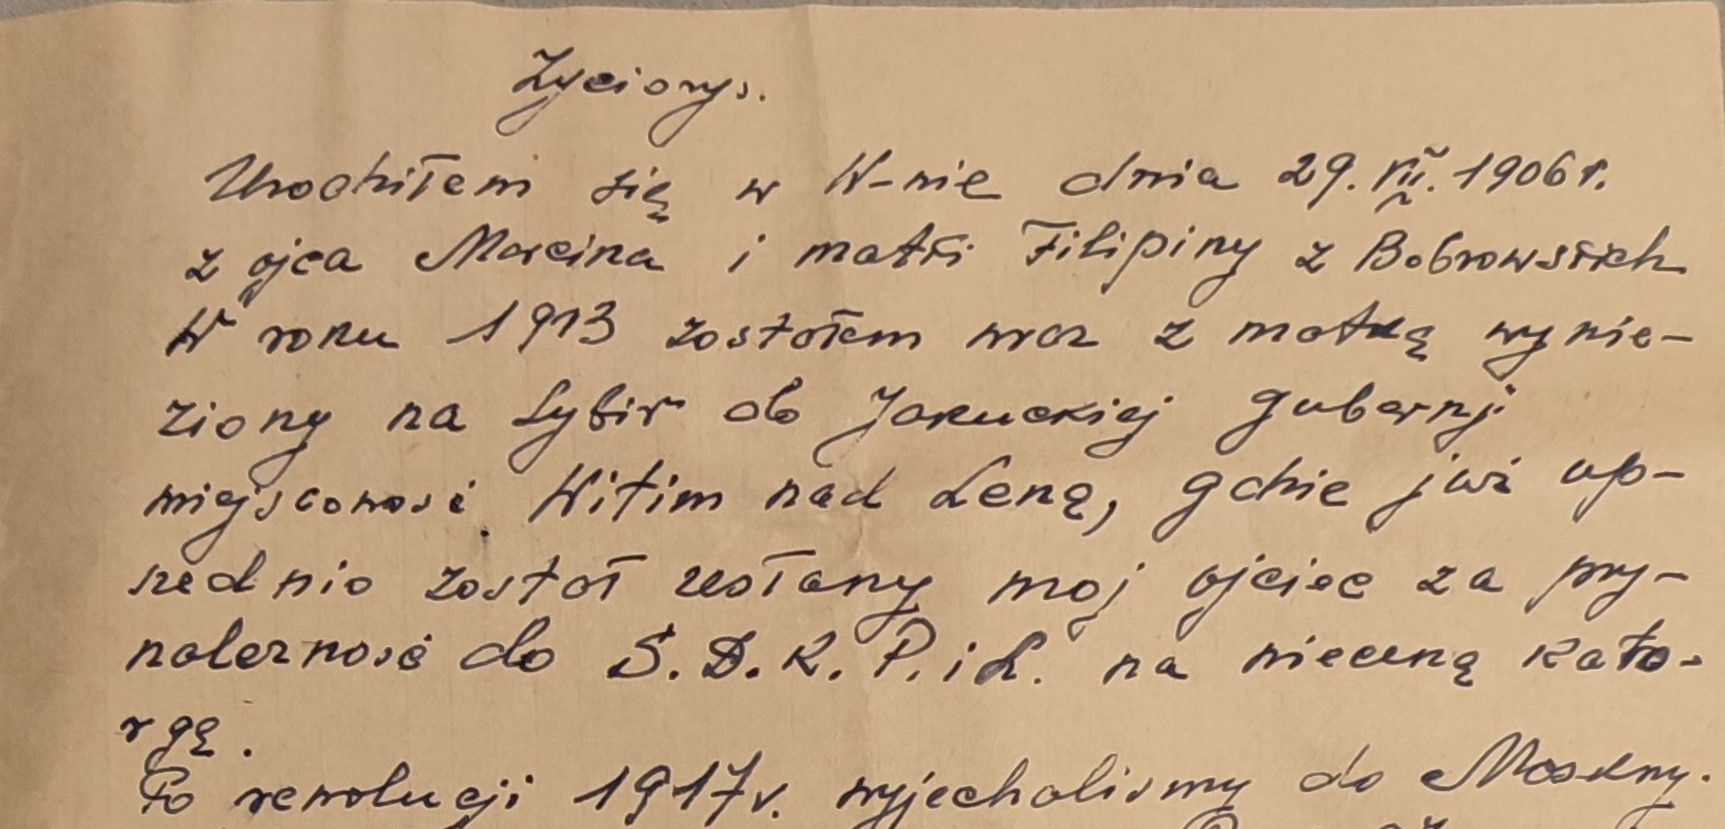 Życiorys.
Urodziłem się w W-nie dnia 29. VII. 1906 r.
z ojca Marcina i matki Filipiny z Bobrowskich
W roku 1913 zostałem wraz z matką wynie-
ziony na Sybir do Jakuckiej gubernji
miejscowość Witim nad Leną, gdzie już up-
rzednio został zesłany moj ojciec za przy-
należność do S.D.K.P.iL. na wieczną kato-
rgę.
Po rewolucji 1917 r. wyjechaliśmy do Moskwy.